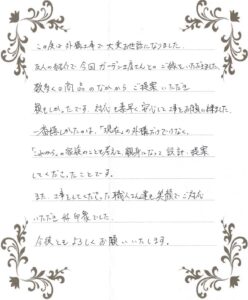 この度は外構工事で大変お世話になりました。
友人の紹介で今回ガーデン土屋さんとのご縁をいただきました。
数多くの商品のなかからご提案いただき
親もしかったです。対応も素早く安心して工事をお願い出来ました。
一番嬉しかったのは、「現在」の外構だけでなく、
「これから」の家族のことも考えて、親身になって設計・提案
してくださったことです。
また、工事をしてくださった職人さん達も笑顔でご対応
いただき好印象でした。
今後ともよろしくお願いいたします。